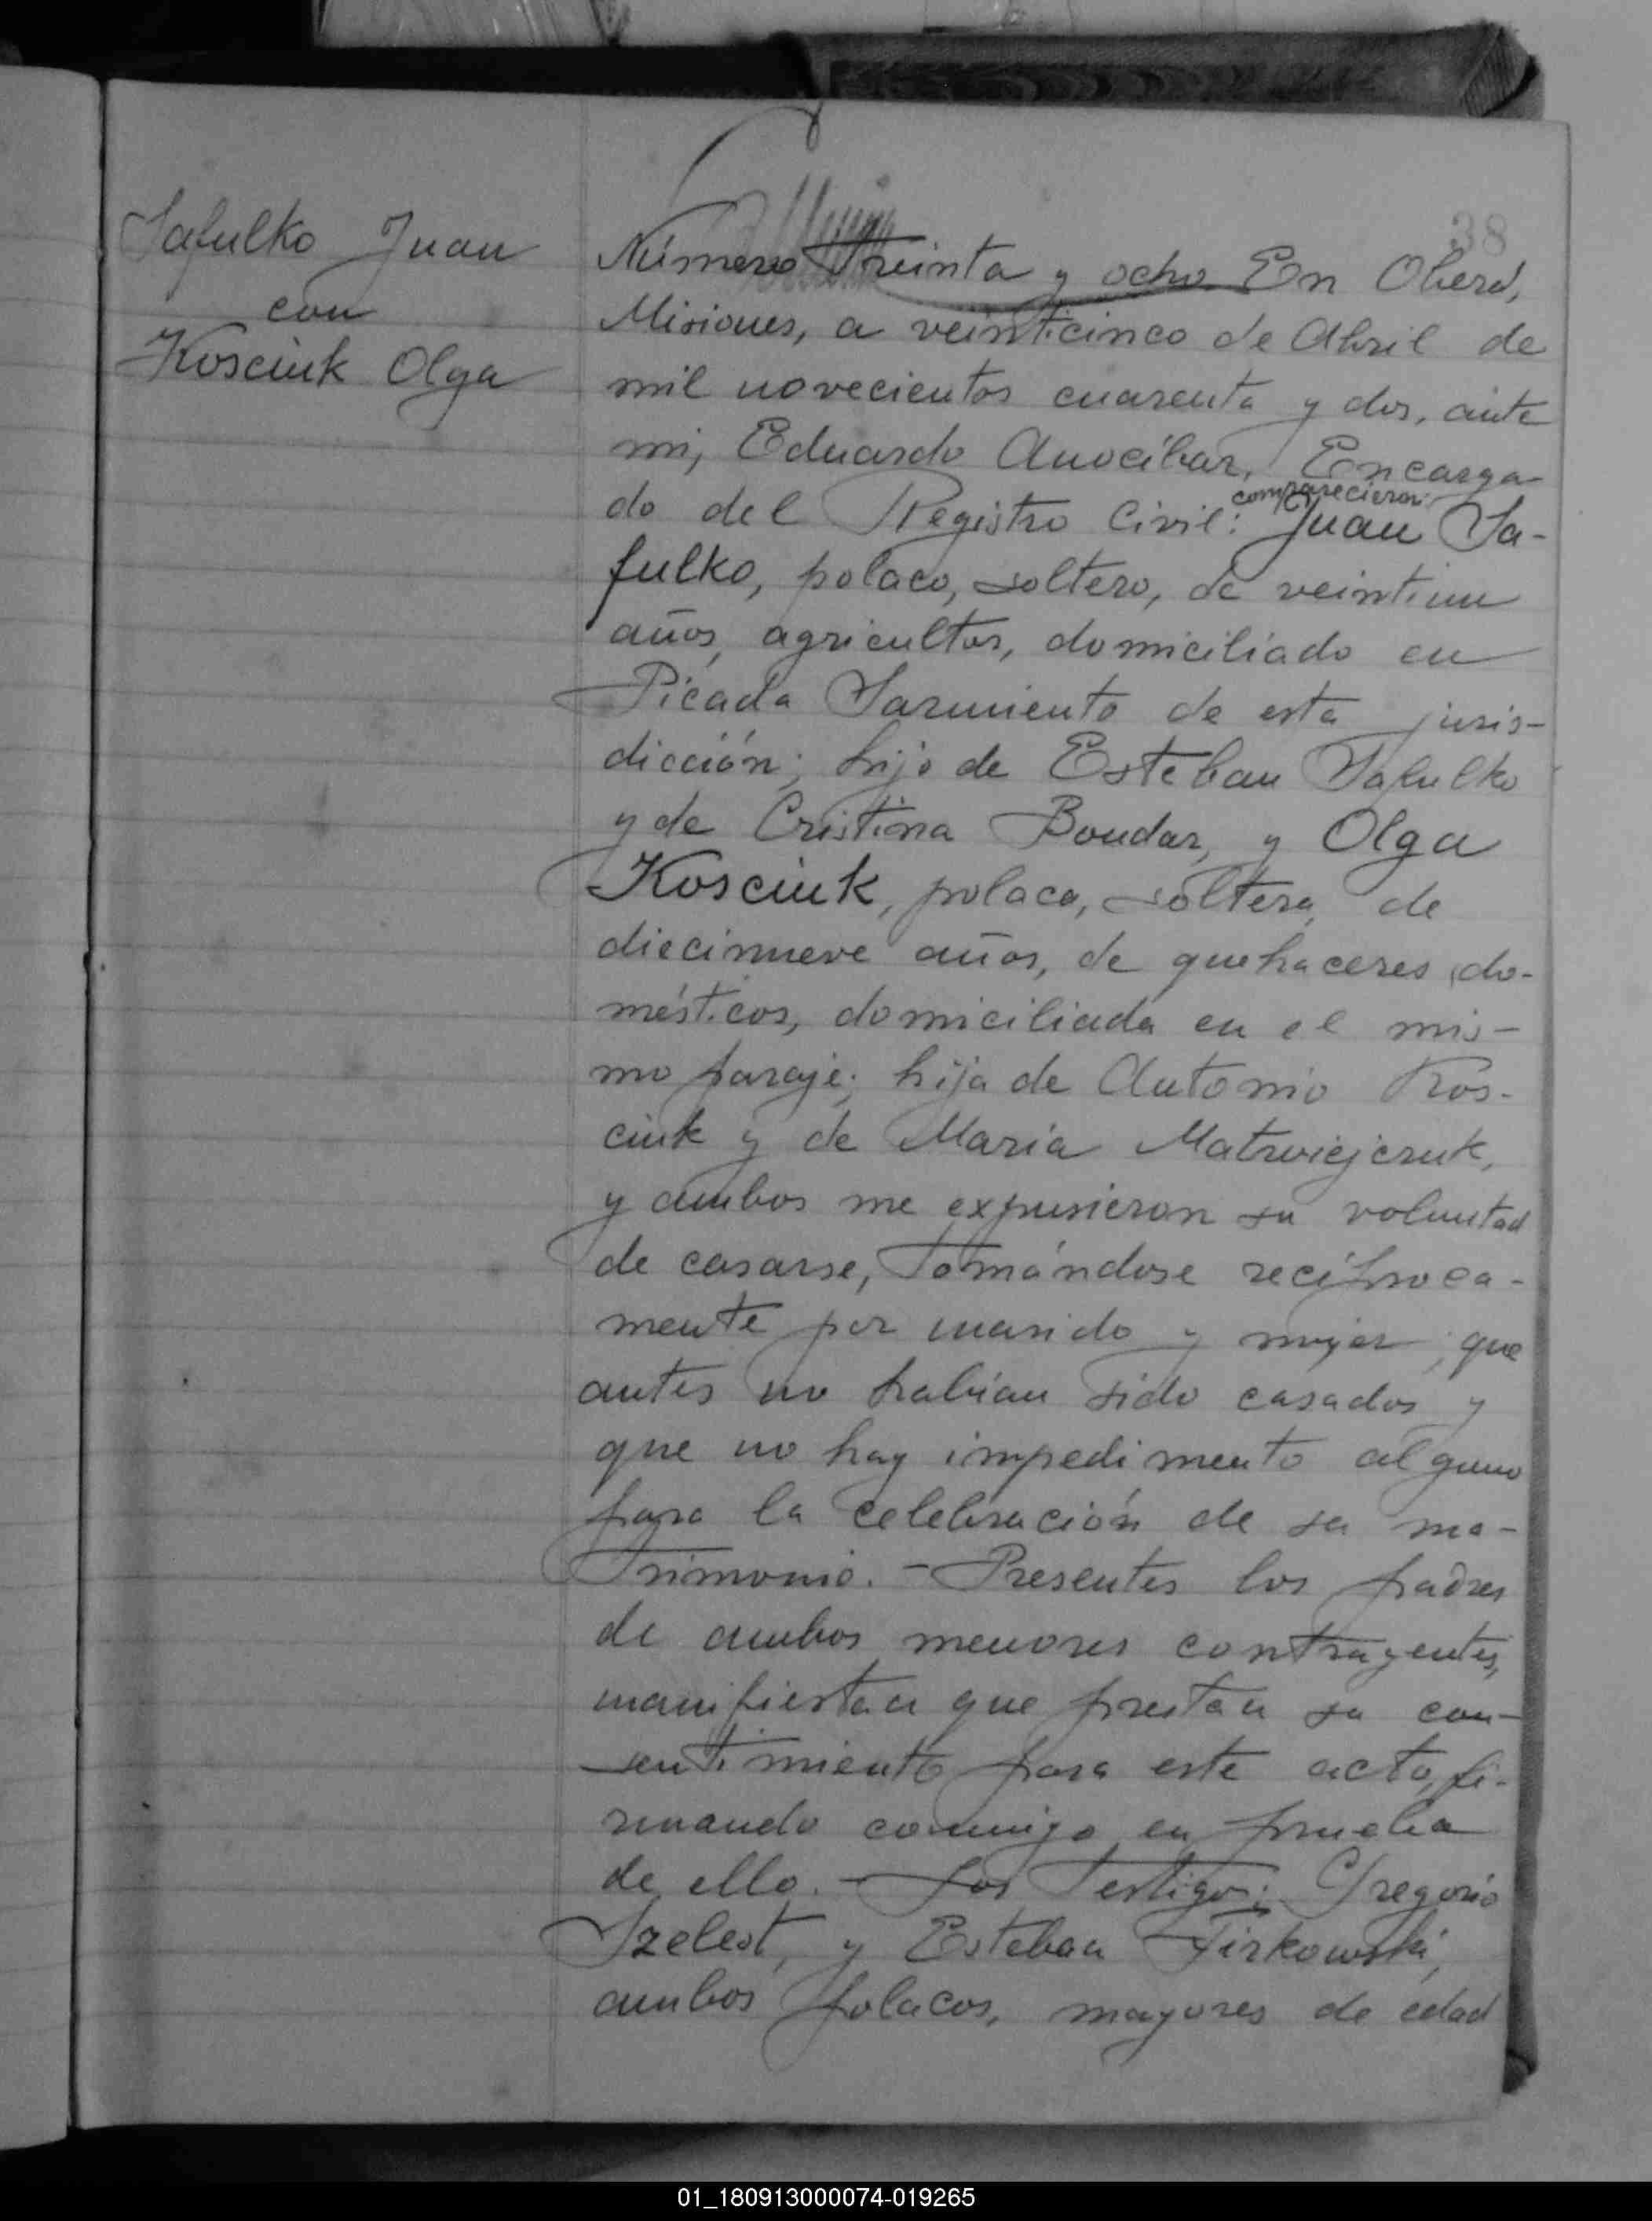 38
Safulko Juan
con
Kosciuk Olga
Número Treinta y ocho. En Oberá,
Misiones, a veinticinco de Abril de
mil novecientos cuarenta y dos, ante
mi, Eduardo Anocíbar, Encarga-
do del Registro Civil: comparecieron: Juan Sa-
fulko, polaco, soltero, de veintiun
años, agricultor, domiciliado en
Picada Sarmiento de esta juris-
dicción; hijo de Esteban Safulko
y de Cristina Bondar, y Olga
Kosciuk, polaca, soltera, de
diecinueve años, de quehaceres do-
mésticos, domiciliada en el mis-
mo paraje; hija de Antonio Kos-
ciuk y de Maria Matwiejczuk,
y ambos me expusieron su voluntad
de casarse, Tomándose recíproca-
mente por marido y mujer; que
antes no habían sido casados y
que no hay impedimento alguno
para la celebración de su ma-
trimonio. - Presentes los padres
de ambos menores contrayentes,
manifiestan que prestan su con-
sentimiento para este acto, fi-
rmando conmigo en prueba
de ello. - Los Testigos: Gregorio
Szelest, y Esteban Firkowski,
ambos polacos, mayores de edad
01_180913000074-019265